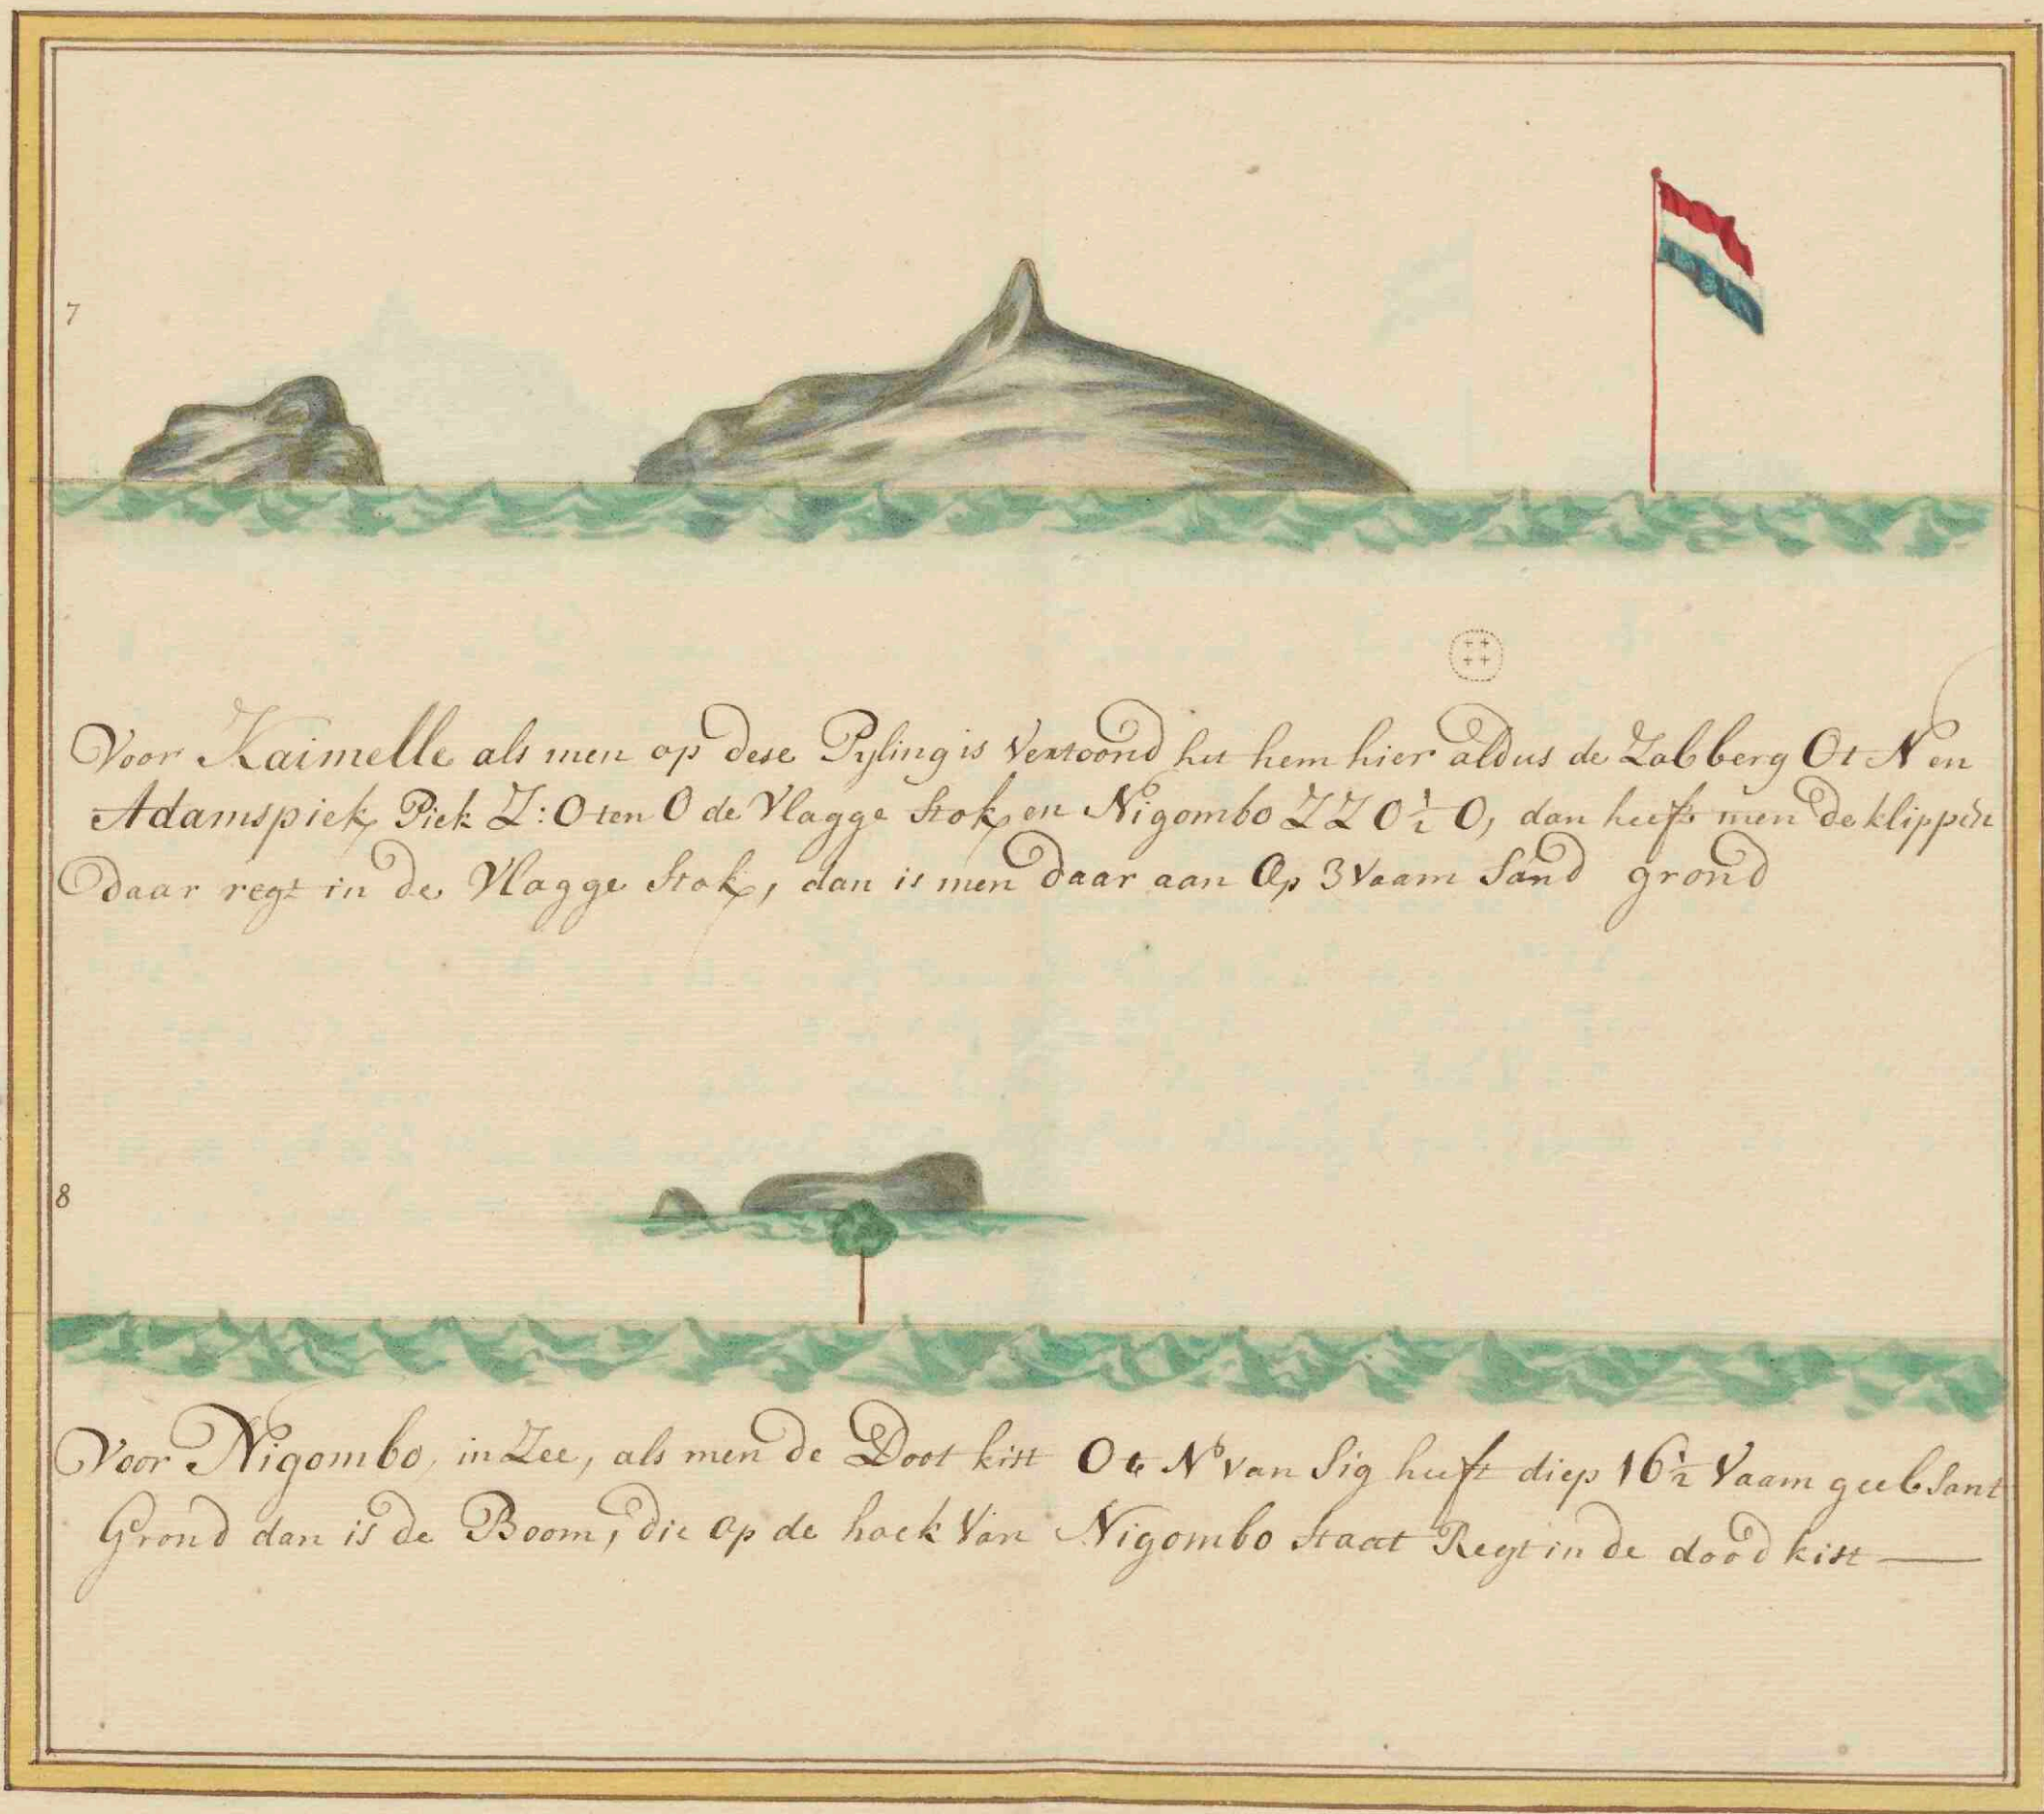 7
Voor Kaimelle als men op dese Pyling is Vertoond het hem hier aldus de Zabberg Ot N en
Adamspiek Piek Z:O ten O de Vlagge Stok en Nigombo ZZO½O, dan heeft men de klippen
daar regt in de Vlagge Stok, dan is men daar aan Op 3 Vaam Sand grond
8
Voor Nigombo, in Zee, als men de Doot kist O te N van Sig heeft diep 16½ Vaam geel Sant
Grond dan is de Boom, die op de hoek Van Nigombo Staat Regt in de dood kist